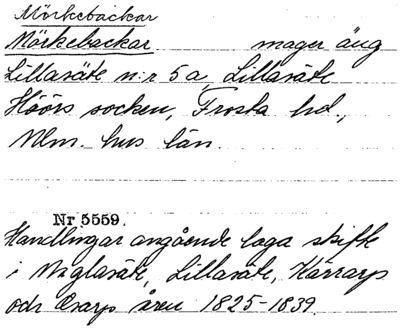 Mörkebackar
Mörkebackar mager äng
Lillasäte n:r 5 a, Lillasäte
Höörs socken, Frosta hd,
Mlm. hus län.
Nr 5559.
Handlingar angående laga skifte
i Miglasäte, Lillasäte, Kärrarp
och Osarp åren 1825-1839.